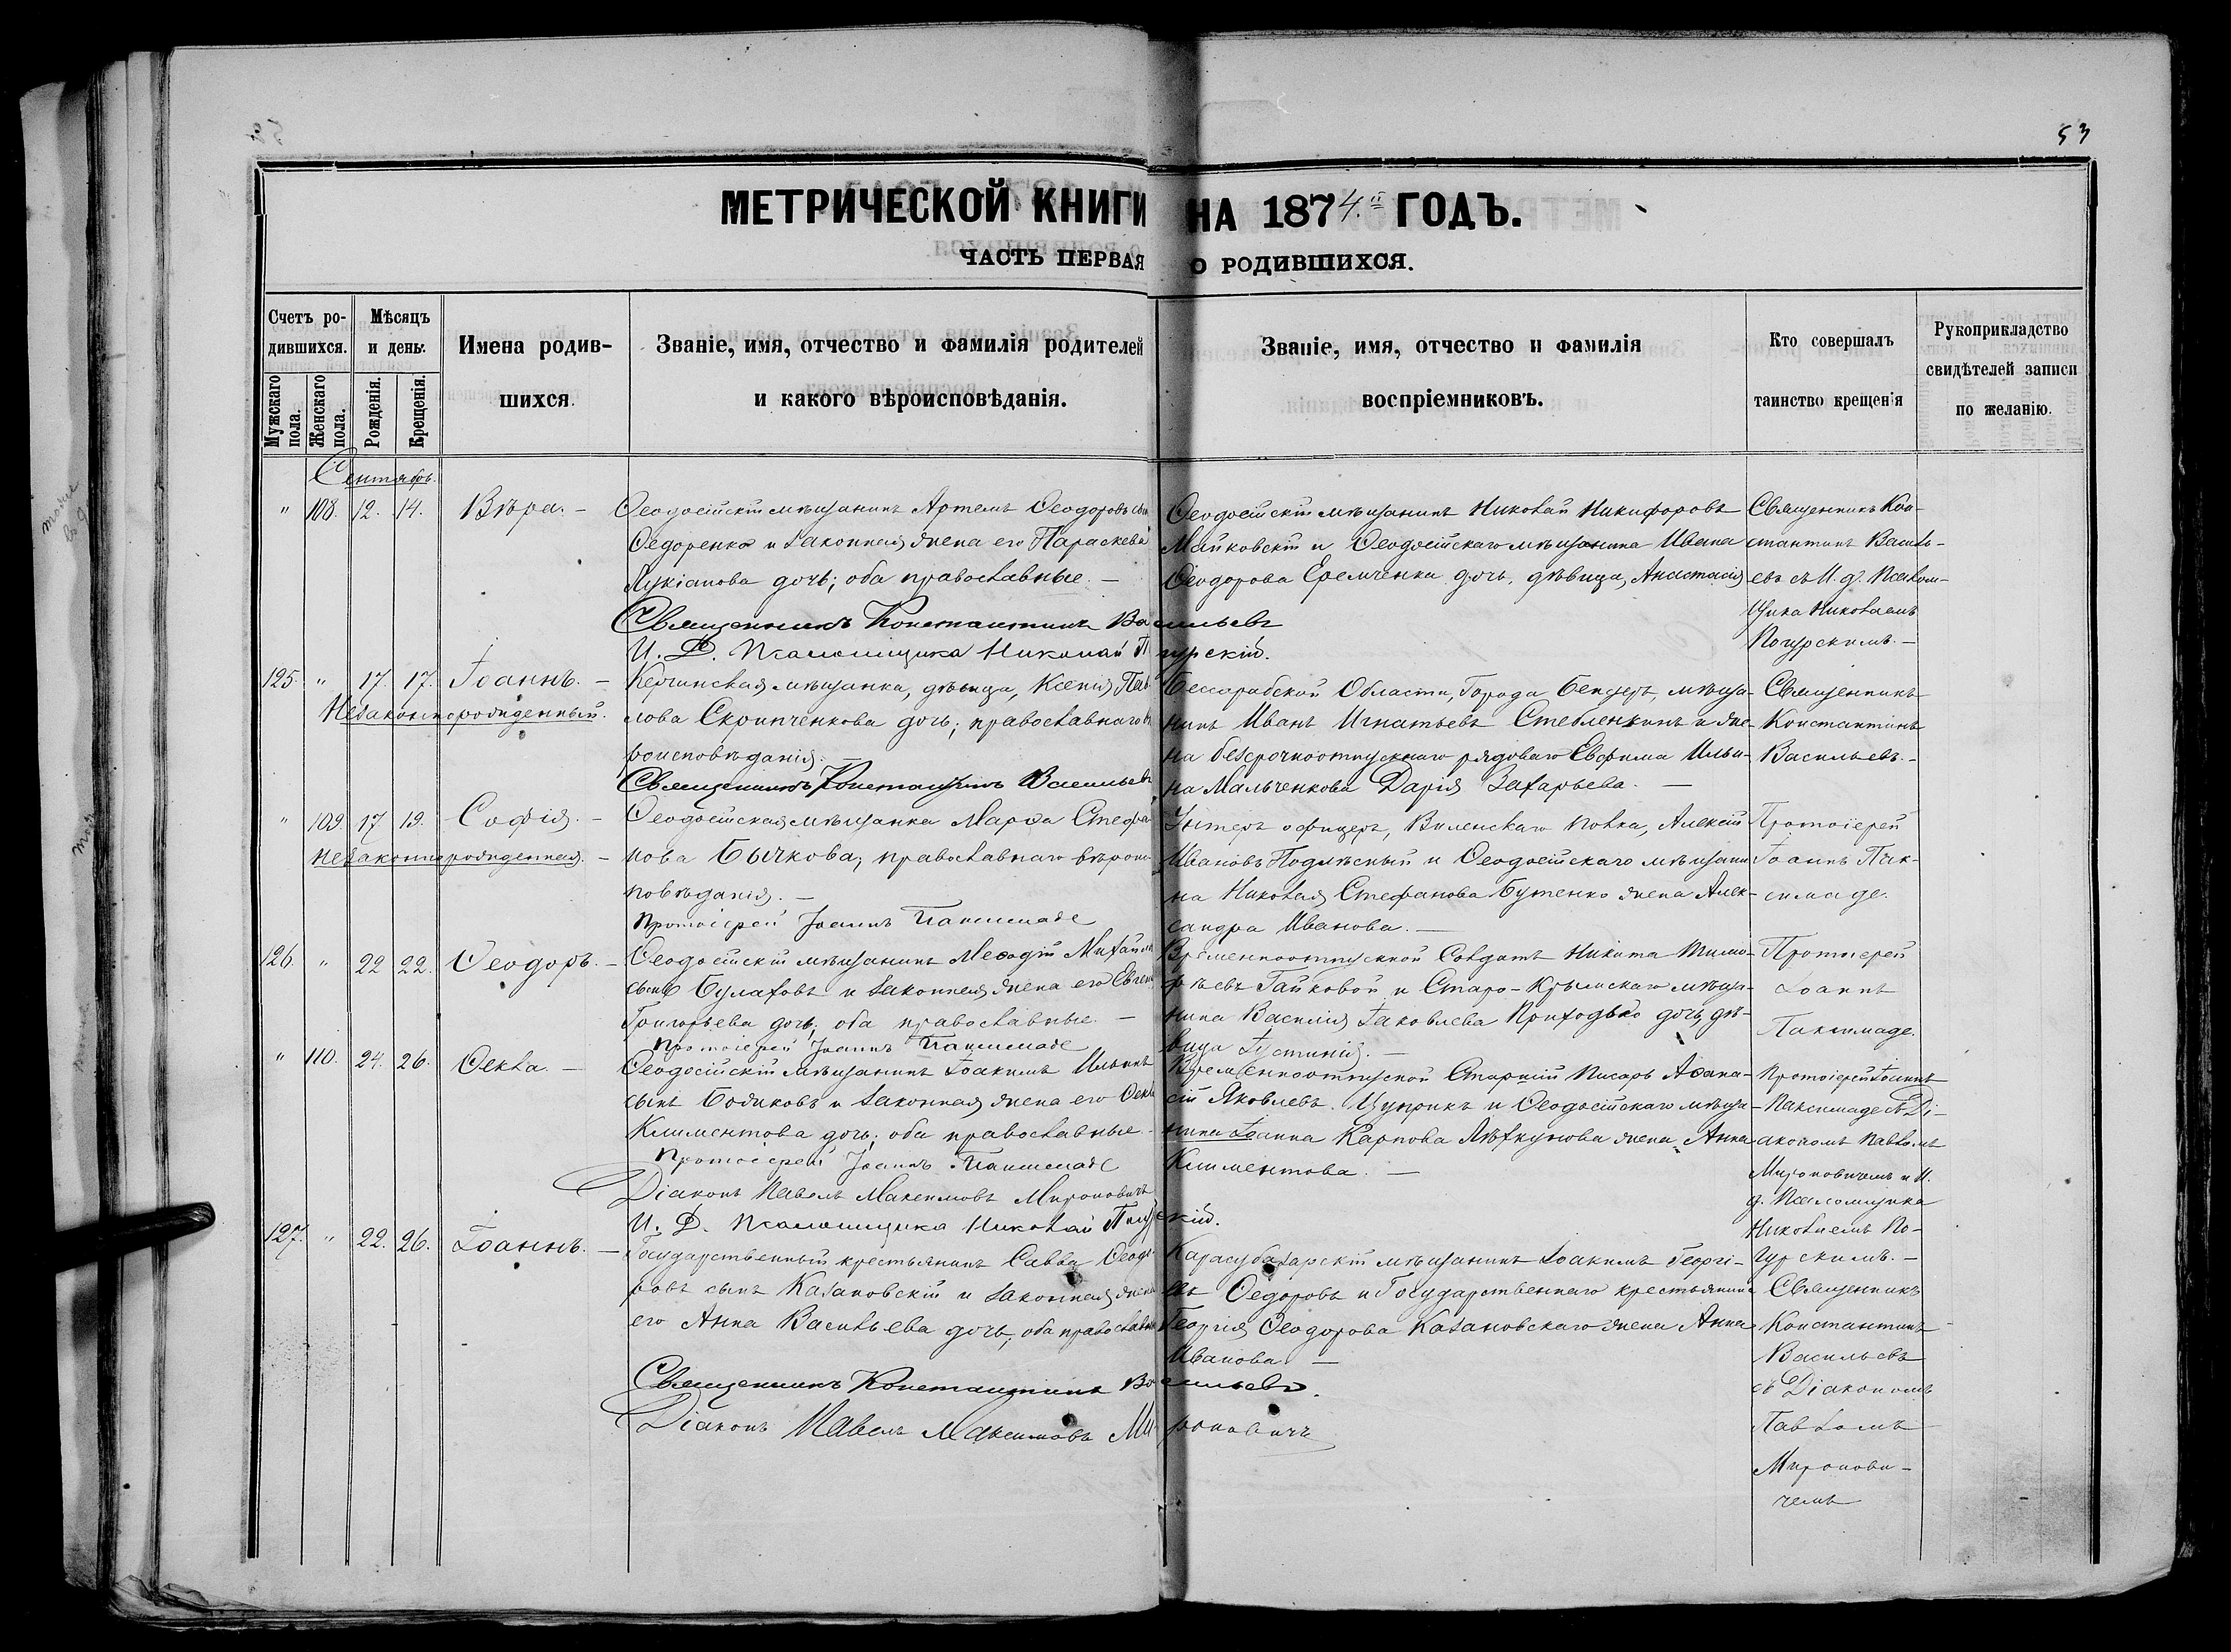 53
МЕТРИЧЕСКОЙ КНИГИ НА 1874.й ГОДЪ.
ЧАСТЬ ПЕРВАЯ О РОДИВШИХСЯ.
Счетъ ро-
дившихся.
Мужскаго пола.
Женскаго пола.
Мѣсяцъ
и день.
Рожденія.
Крещенія.
Имена родив-
шихся
Званіе, имя, отчество и фамилія родителей
и какого вѣроисповѣданія.
Званіе, имя, отчество и фамилія
воспріемниковъ.
Кто совершалъ
таинство крещенія
Рукоприкладство
свидѣтелей записи
по желанію.
Сентябрь.
" 108. 12. 14. Вѣра. –
Ѳеодосійскій мѣщанинъ Артемъ Ѳеодоровъ сынъ
Ѳедоренко и законная жена его Параскева
Лукіанова дочь; оба православные. –
Ѳеодосійскій мѣщанинъ Николай Никифоровъ
Майковскій и Ѳеодосійскаго мѣщанина Ивана
Ѳеодорова Еремченка дочь, дѣвица, Анастасія
Священникъ Кон-
стантинъ Василь-
евъ съ И. д. Псалом-
щика Николаемъ
Погурскимъ. –
Священникъ Константинъ Васильевъ
И. Д. Псаломщика Николай Погурскій.
125. " 17. 17. Іоаннъ. –
Незаконнорожденный.
Керчинская мѣщанка, дѣвица, Ксенія Пав-
лова Скрипченкова дочь; православнаго вѣ-
роисповѣданія. –
Священникъ Константинъ Васильевъ
Бессарабской Области, Города Бендеръ, мѣща-
нинъ Иванъ Игнатьевъ Стебленкинъ и же-
на безсрочноотпускнаго рядоваго Евфима Ильи-
на Мальченкова Дарія Захарьева. –
Священникъ
Константинъ
Васильевъ. –
" 109. 17 19. Софія. –
Незаконнорожденная. –
Ѳеодосійская мѣщанка Марѳа Стефа-
нова Бычкова; православнаго вѣроис-
повѣданія. –
Протоіерей Іоаннъ Паксимаде
Унтеръ офицеръ, Виленскаго полка, Алексій
Ивановъ Подлѣсный и Ѳеодосійскаго мѣщани-
на Николая Стефанова Бутенко жена Алек-
сандра Иванова. –
Протоіерей
Іоаннъ Пак-
симаде.
126. " 22 22. Ѳеодоръ. –
Ѳеодосійскій мѣщанинъ Меѳодій Михайловъ
сынъ Булаховъ и законная жена его Евгенія
Григорьева дочь; оба православные. –
Протоіерей Іоаннъ Паксимаде
Временноотпускной Солдатъ Никита Тимо-
фѣевъ Гайковой и Старо-Крымскаго мѣща-
нина Василія Іаковлева Приходько дочь, дѣ-
вица Іустинія. –
Протоіерей
Іоаннъ
Паксимаде.
" 110. 24. 26. Ѳекла. –
Ѳеодосійскій мѣщанинъ Іоакимъ Ильинъ
сынъ Бодиковъ и законная жена его Ѳекла
Климентова дочь; оба православные. –
Протоіерей Іоаннъ Паксимаде
Діаконъ Павелъ Максимовъ Мироновичъ
И. Д. Псаломщика Николай Погурскій.
Временноотпускной Старшій Писарь Аѳана-
сій Яковлевъ Цуприкъ и Ѳеодосійскаго мѣща-
нина Іоанна Карпова Лѣхкунова жена Анна
Климентова. –
Протоіерей Іоаннъ
Паксимаде съ Ді-
акономъ Павломъ
Мироновичемъ и И.
д. Псаломщика
Николаемъ По-
гурскимъ. –
127. " 22. 26. Іоаннъ. –
Государственный крестьянинъ Савва Ѳеодо-
ровъ сынъ Казановскій и законная жена
его Анна Васильева дочь; оба православные
Священникъ Константинъ Васильевъ.
Діаконъ Павелъ Максимовъ Мироновичъ
Карасубазарскій мѣщанинъ Іоакимъ Георгі-
евъ Ѳедоровъ и Государственнаго крестьянина
Георгія Ѳеодорова Казановскаго жена Анна
Иванова. –
Священникъ
Константинъ
Васильевъ
съ Діакономъ
Павломъ
Миронови-
чемъ